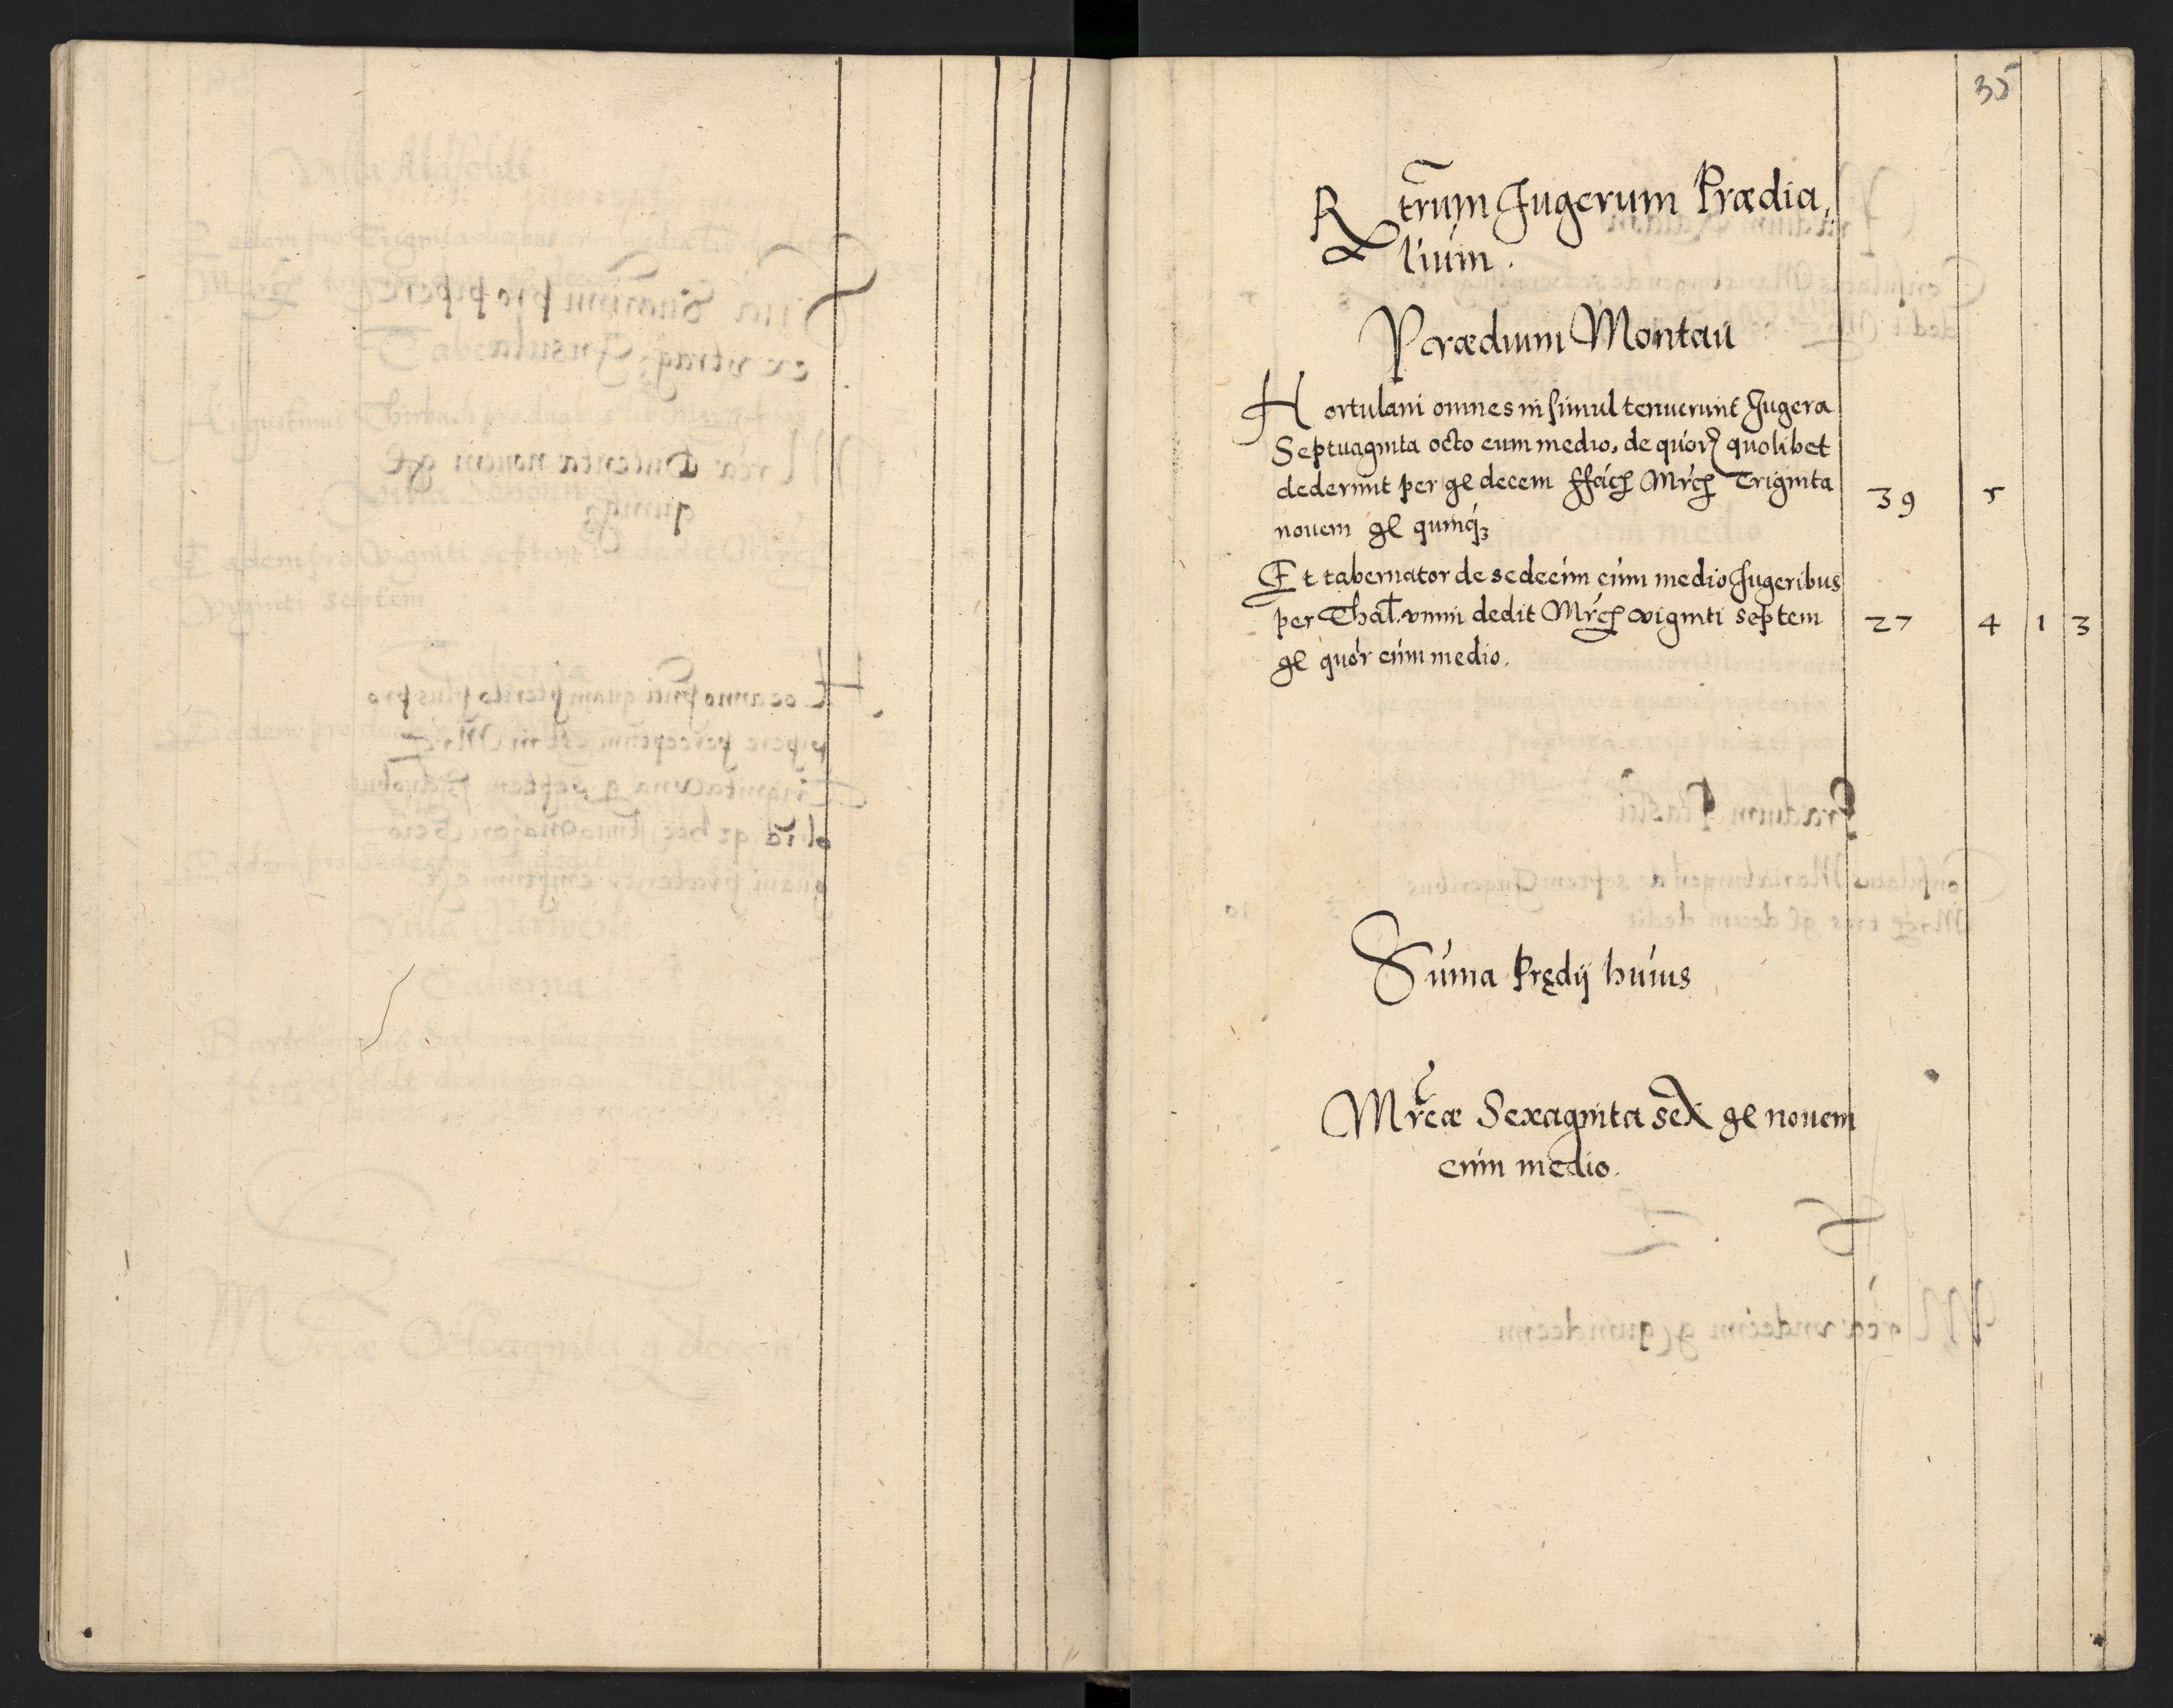 35
Rtrum Jugerum Prædia„
lium.
Prædium Montau
Hortulani omnes insimul tenuerunt Jugera
Septuaginta octo cum medio, de quorꝝ quolibet
dederunt per gl decem ffác Mrc Triginta 39 5
nouem gl quinqꝫ
Et tabernator de sedecim cum medio Jugeribus
per Thal. vnum dedit Mrc viginti septem 27 4 1 3
gl quor cum medio.
Suma Prędij huius
Mrcæ Sexaginta sex gl nouem
cum medio.